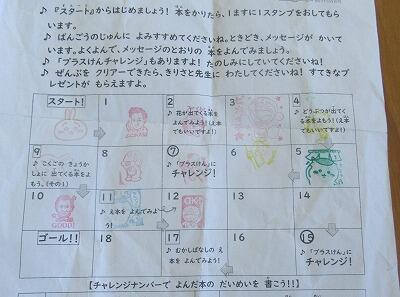 ♪ 『スタート』からはじめましょう！ 本をかりたら、1ますに1スタンプをおしてもらいます。
♪ ばんごうのじゅんに よみすすめてくださいね。ときどき、メッセージが かいています。よくよんで、メッセージのとおりの 本をよんでみましょう。
♪ 「プラスけんチャレンジ」もありますよ！ たのしみにしていてくださいね！
♪ ぜんぶを クリアーできたら、きりさと先生に わたしてくださいね！ すてきなプレゼントが もらえますよ。
スタート！
1
2
♪ 花が出てくる本をよんでみよう！（え本でもいいですよ！）
3
4
♪ どうぶつが出てくる本をよもう！（え本でもいいですよ！）
9
♪ こくごの きょうかしょに 出てくる本をよもう。（その1）
8
⑦
♪ 「プラスけん」に
チャレンジ！
6
5
10
GOOD!
11
♪ え本を よんでみよう！
12
13
14
ゴール！！
18
17
♪ むかしばなしの え本を よんでみよう！
16
⑮
♪ 「プラスけん」に
チャレンジ！
【チャレンジナンバーで よんだ本の だいめいを 書こう！！】